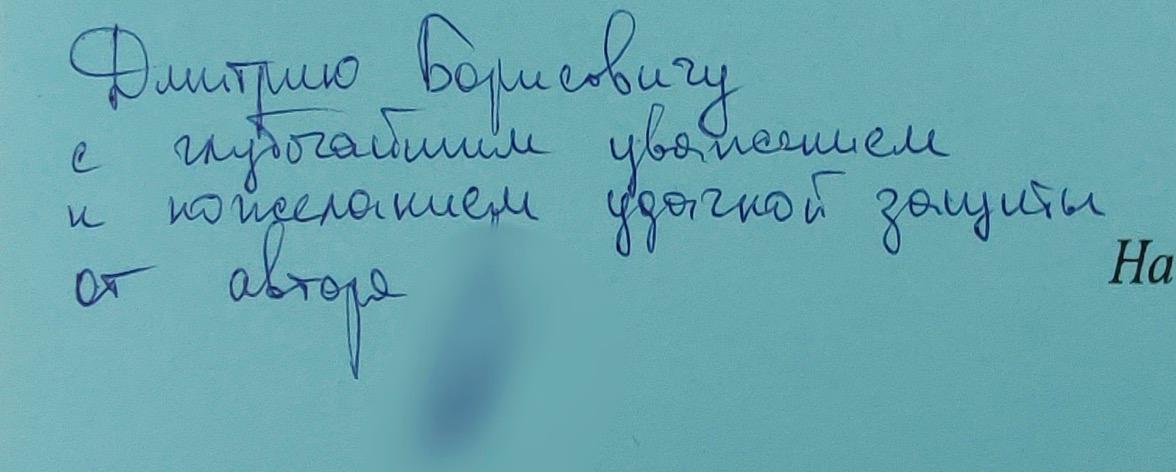 Дмитрию Борисовичу
с глубочайшим уважением
и пожеланием удачной защиты
от автора
На